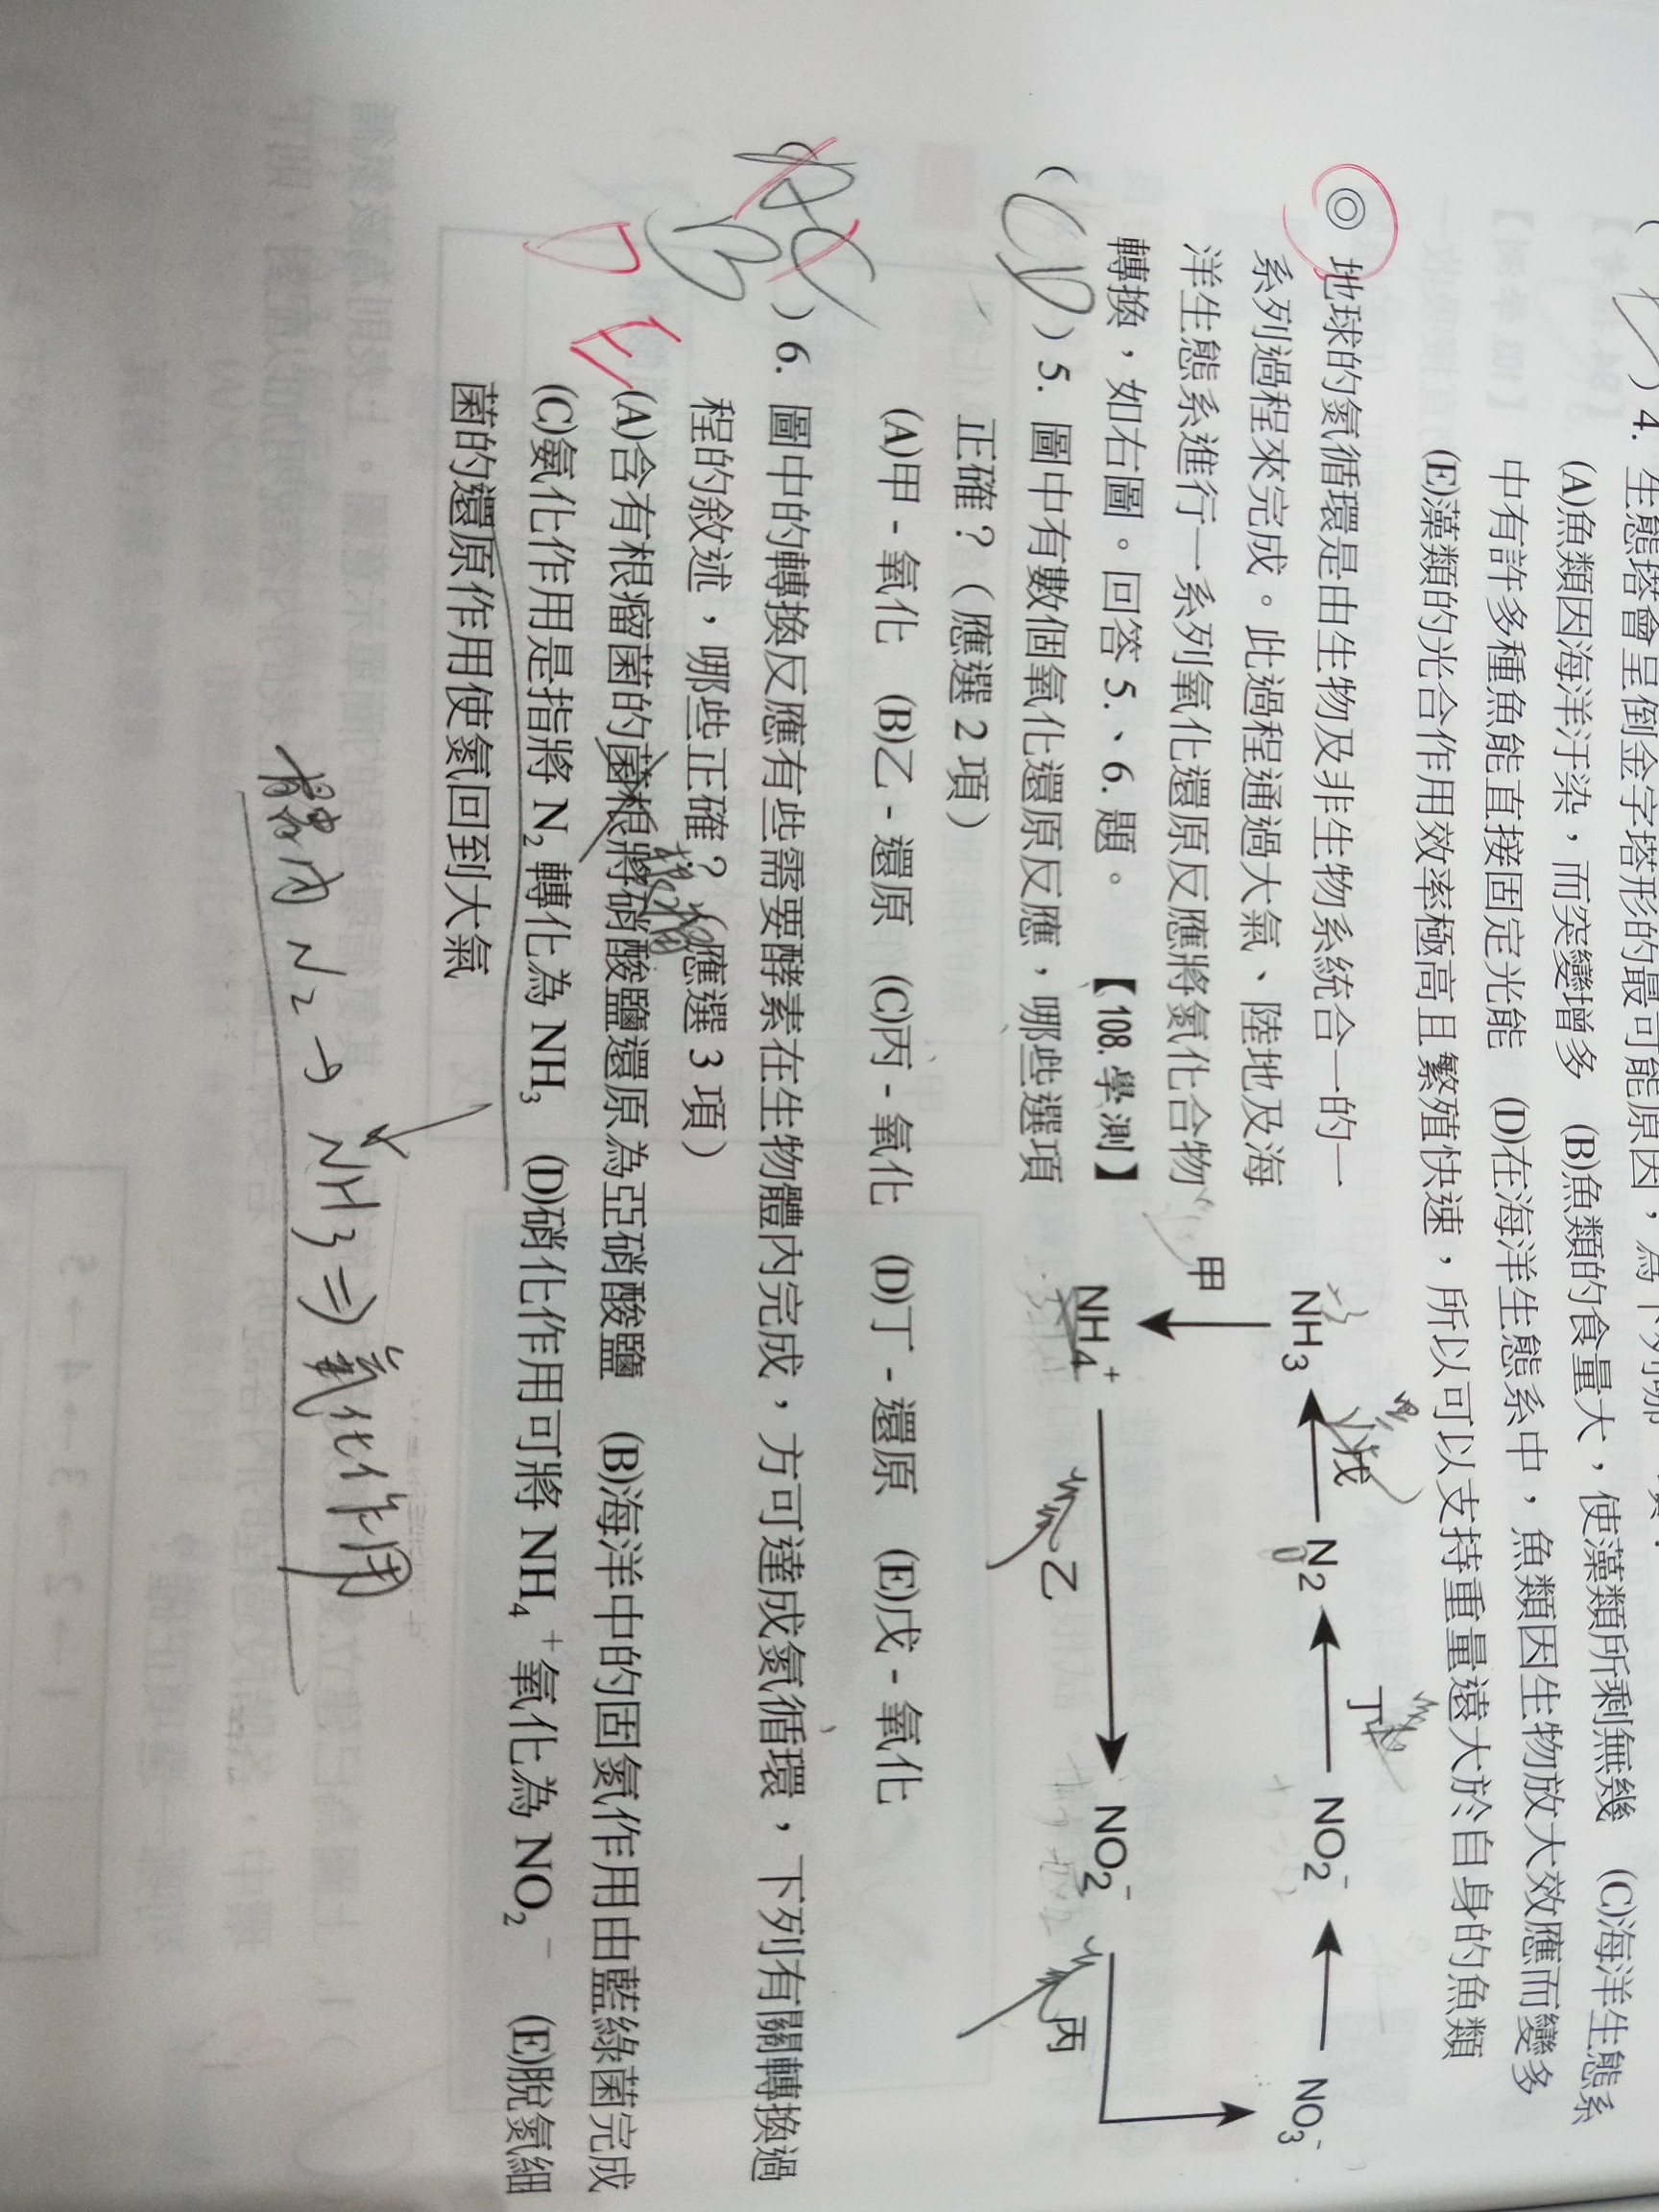 4. 生態塔會呈倒金字塔形的最可能原因，為下列哪
(A)魚類因海洋汙染，而突變增多 (B)魚類的食量大，使藻類所剩無幾 (C)海洋生態系
中有許多種魚能直接固定光能 (D)在海洋生態系中，魚類因生物放大效應而變多
(E)藻類的光合作用效率極高且繁殖快速，所以可以支持重量遠大於自身的魚類
◎ 地球的氮循環是由生物及非生物系統合一的一
系列過程來完成。此過程通過大氣、陸地及海
洋生態系進行一系列氧化還原反應將氮化合物
轉換，如右圖。回答 5.、6. 題。 【108. 學測】
NH3 戊 N2 丁 NO2- NO3-
甲
NH4+ 乙 NO2- 丙
(CD) 5. 圖中有數個氧化還原反應，哪些選項
正確？（應選 2 項）
(A)甲 - 氧化 (B)乙 - 還原 (C)丙 - 氧化 (D)丁 - 還原 (E)戊 - 氧化
( ) 6. 圖中的轉換反應有些需要酵素在生物體內完成，方可達成氮循環，下列有關轉換過
B
D E
程的敘述，哪些正確？（應選 3 項）
(A)含有根瘤菌的菌根將硝酸鹽還原為亞硝酸鹽 (B)海洋中的固氮作用由藍綠菌完成
(C)氨化作用是指將 N2 轉化為 NH3 (D)硝化作用可將 NH4+ 氧化為 NO2- (E)脫氮細
菌的還原作用使氮回到大氣
N2 → NH3 ⇒ 氨化作用